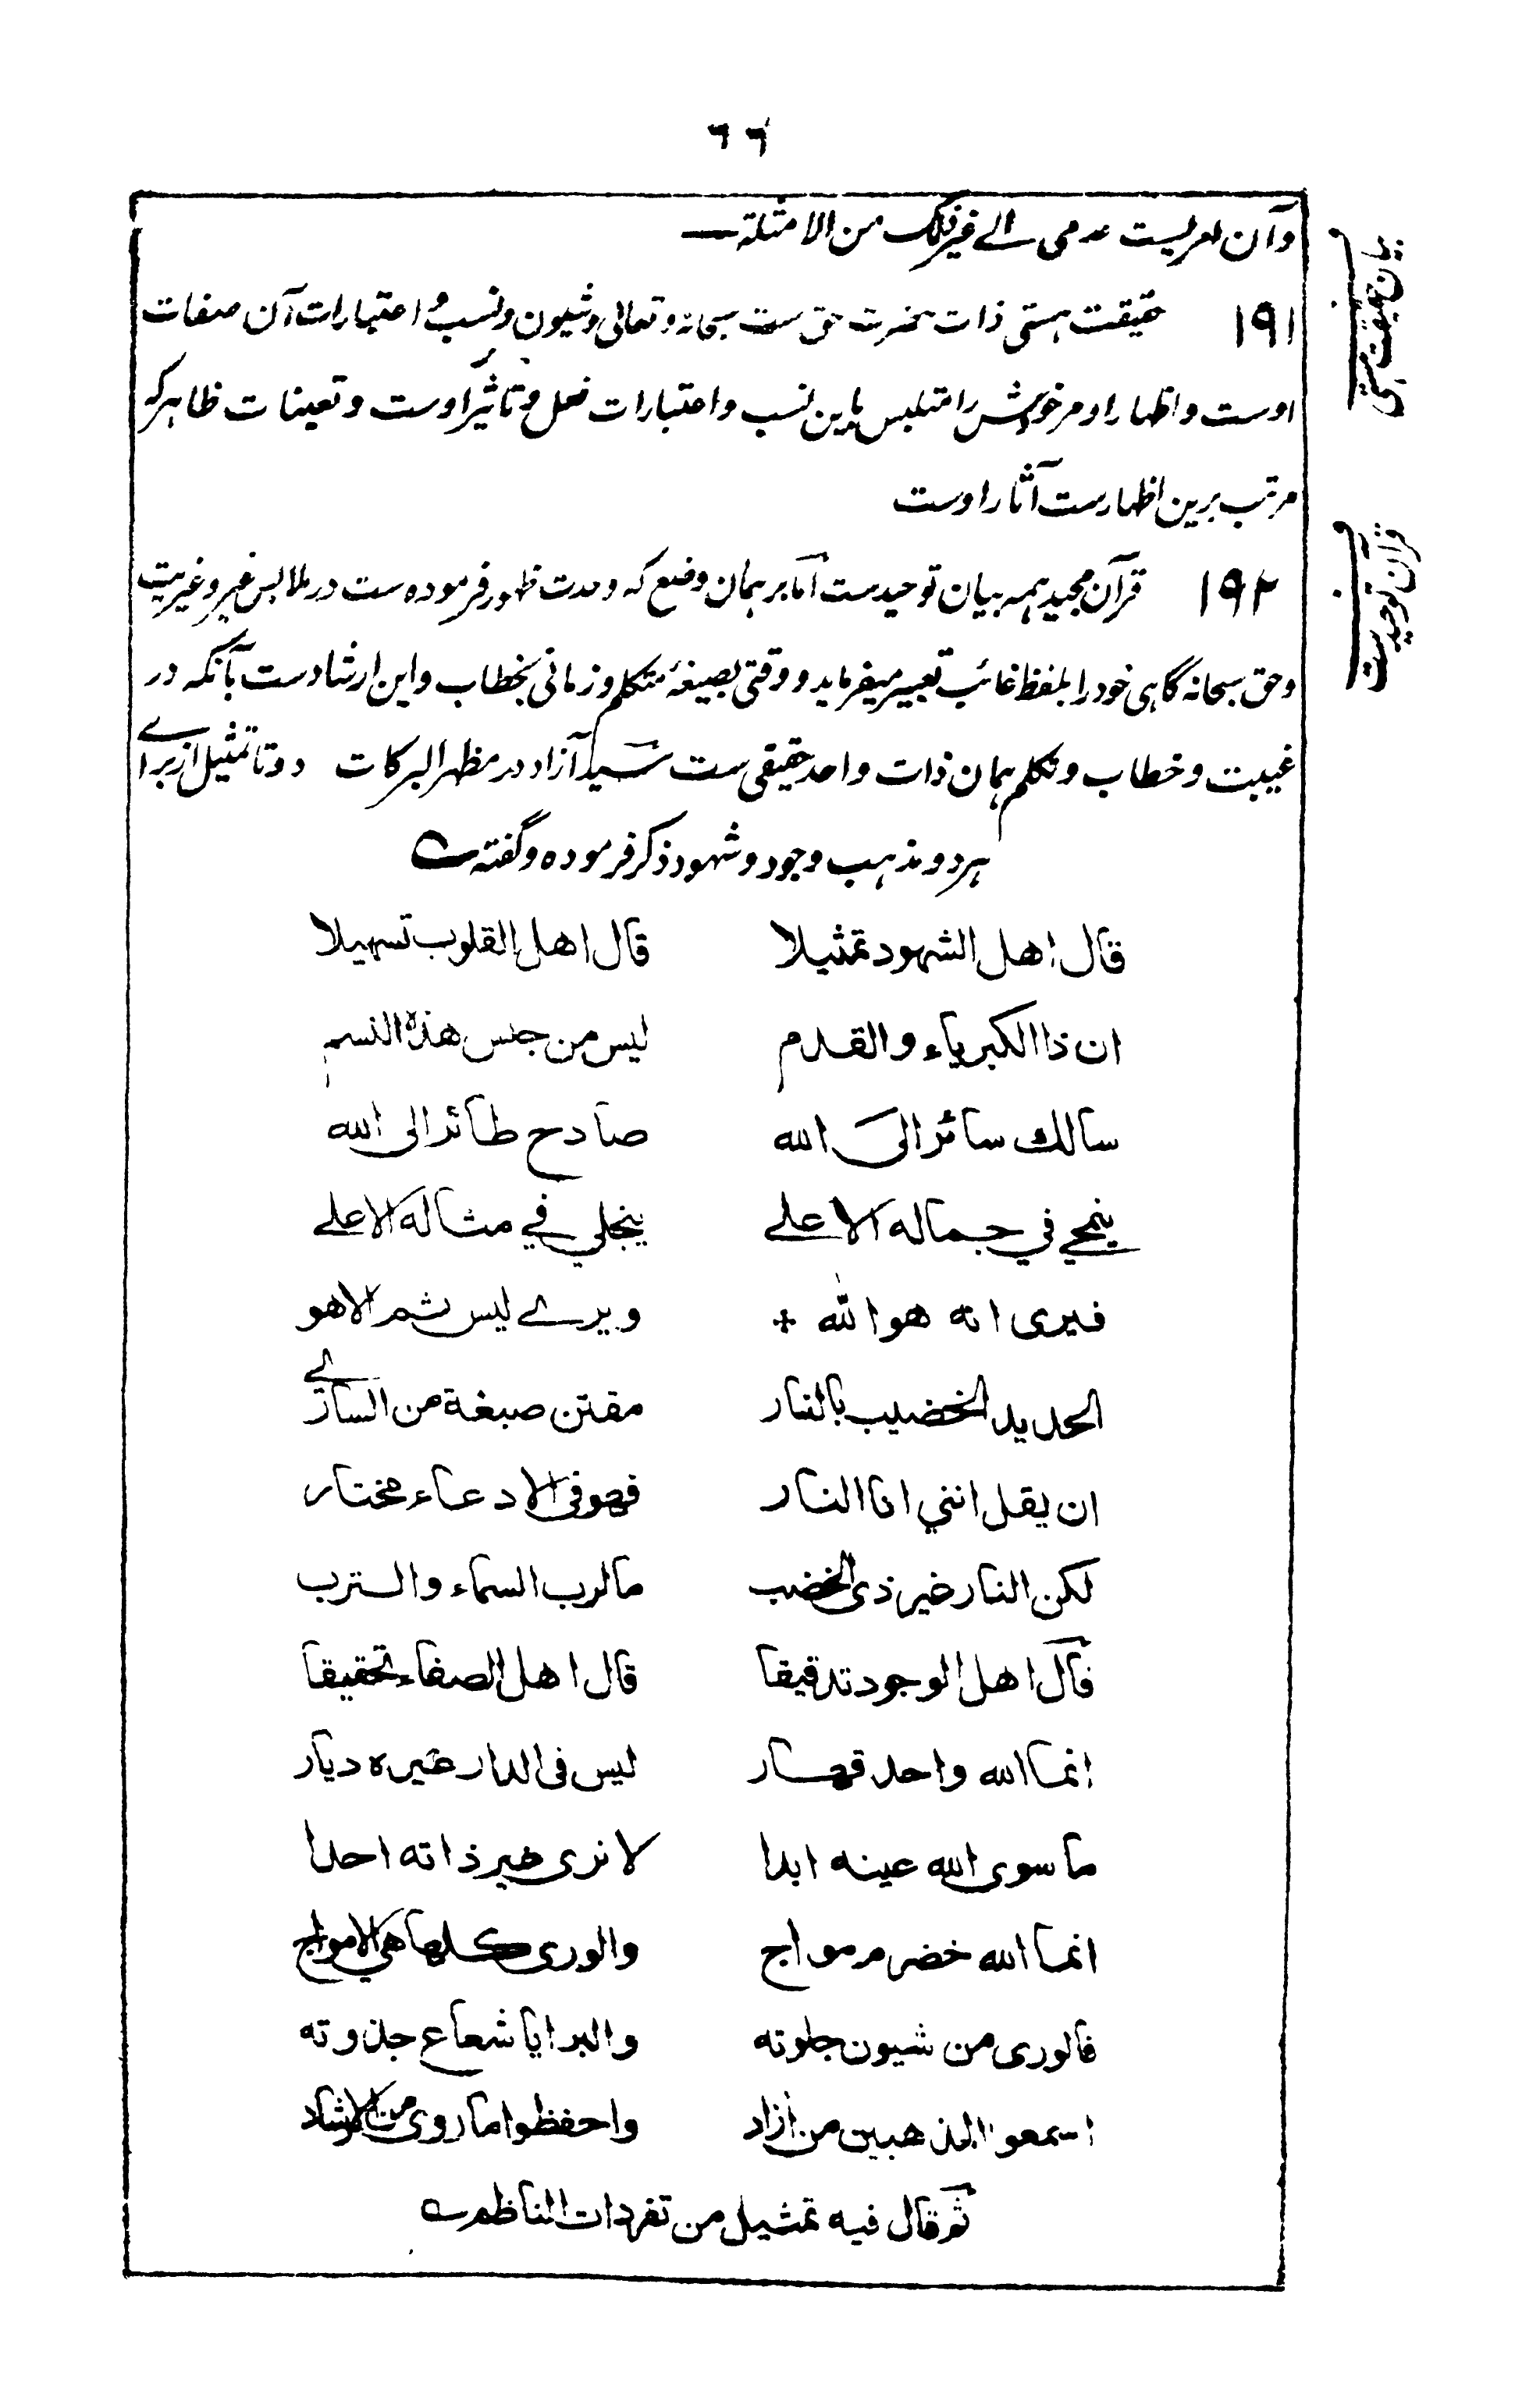 ٦٦
وآن امریست عدمی الے غیر ذلک من الامثلة
۱۹۱ حقیقت ہستی ذات حضرت حق ست سبحانہ و تعالی و شیون و نسب و اعتبارات آن صفات
اوست و اظہار او مر خویش را متلبس باین نسب و اعتبارات فعل و تاثیر اوست و تعینات ظاہر کہ
مرتب برین اظہار ست آثار اوست
بیان حقیقت ہستی
۱۹۲ قرآن مجید ہمہ بیان توحید ست اما بر ہمان وضع کہ وحدت ظہور فرمودہ ست در ملابس غیر و غیریت
و حق سبحانہ گاہی خود را بلفظ غائب تعبیر میفرماید و وقتی بصیغۂ متکلم و زمانی بخطاب و این ارشاد ست بآنکہ در
غیبت و خطاب و تکلم ہمان ذات واحد حقیقی ست سید آزاد در مظہر البرکات دو تا تمثیل از برای
ہر دو مذہب وجود و شہود ذکر فرمودہ و گفتہ
قرآن توحید ست
قال اهل الشهود تمثيلا قال اهل القلوب تسهيلا
ان ذا الكبرياء والقدم ليس من جنس هذه النسم
سالك سائر الى الله صادح طائر الى الله
ينمحي في جماله الاعلے ينجلي في مثاله الاعلے
فيرى انه هو الله * ويرے ليس ثم الا هو
الحديد الخضيب بالنار مقتن صبغة من السارے
ان يقل انني انا النار فهو فى الادعاء مختار
لكن النار خير ذى الخضب ما لرب السماء والترب
قال اهل الوجود تدقيقا قال اهل الصفاء تحقيقا
انما الله واحد قهار ليس فى الدار غيره ديار
ما سوى الله عينه ابدا لا نرى غير ذاته احدا
انما الله خضرم مواج والورى كلها هي الامواج
فالورى من شيون جلوته والبرايا شعاع جذوته
اسمعوا المذهبين من آزاد واحفظوا ما روى من الارشاد
ثم قال فيه تمثيل من تفردات الناظم